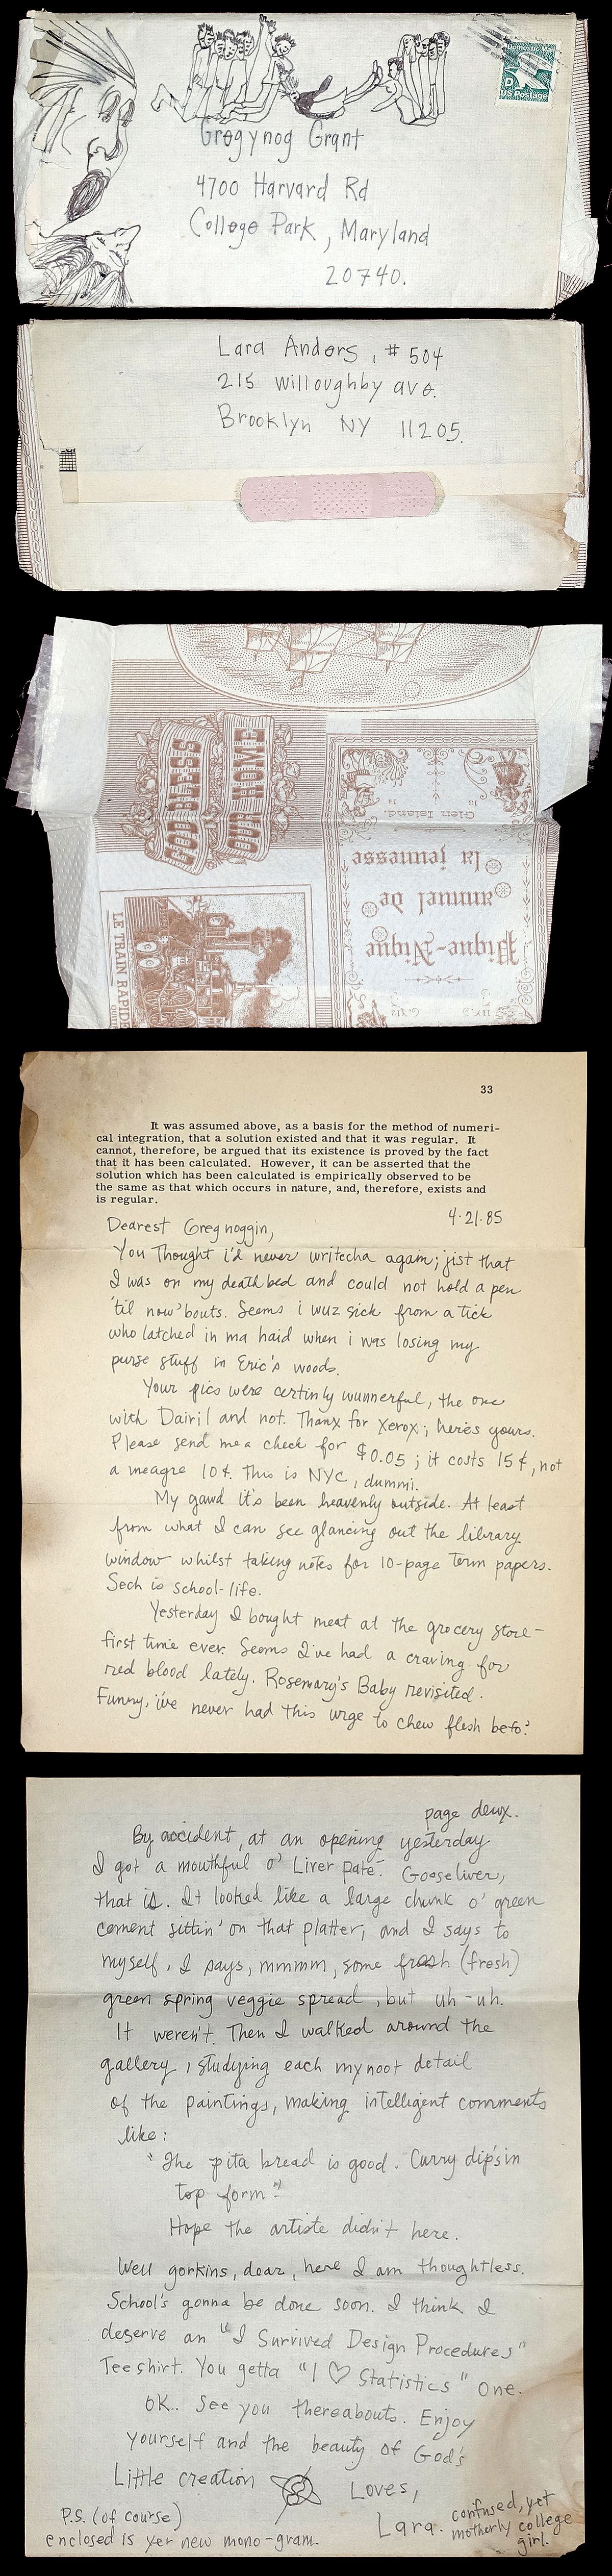 Domestic Mail
D
US Postage
Gregynog Grant
4700 Harvard Rd
College Park, Maryland
20740.
Lara Anders, #504
215 willoughby ave.
Brooklyn NY 11205.
GOD BLESS
OUR HOME
Glen Island.
Pique-Nique
annuel de
la jeunesse
LE TRAIN RAPIDE
33
It was assumed above, as a basis for the method of numeri-
cal integration, that a solution existed and that it was regular. It
cannot, therefore, be argued that its existence is proved by the fact
that it has been calculated. However, it can be asserted that the
solution which has been calculated is empirically observed to be
the same as that which occurs in nature, and, therefore, exists and
is regular.
4.21.85
Dearest Gregnoggin,
You Thought i'd never writecha again; jist that
I was on my death bed and could not hold a pen
'til now'bouts. Seems i wuz sick from a tick
who latched in ma haid when i was losing my
purse stuff in Eric's woods.
Your pics were certinly wunnerful, the one
with Dairil and not. Thanx for Xerox; here's yours.
Please send me a check for $0.05; it costs 15¢, not
a meagre 10¢. This is NYC, dummi.
My gawd it's been heavenly outside. At least
from what I can see glancing out the library
window whilst taking notes for 10-page Term papers.
Sech is school-life.
Yesterday I bought meat at the grocery store-
first time ever. Seems I've had a craving for
red blood lately. Rosemary's Baby revisited.
Funny, i've never had this urge to chew flesh befo'.
page deux.
By accident, at an opening yesterday
I got a mouthful o' Liver paté. Gooseliver,
that is. It looked like a large chunk o' green
cement sittin' on that platter, and I says to
myself, I says, mmmm, some (fresh)
green spring veggie spread, but uh-uh.
It weren't. Then I walked around the
gallery, studying each mynoot detail
of the paintings, making intelligent comments
like:
"The pita bread is good. Curry dip's in
top form"
Hope the artiste didn't here.
Well gorkins, dear, here I am thoughtless.
School's gonna be done soon. I think I
deserve an "I Survived Design Procedures"
Tee shirt. You getta "I ♡ Statistics" one.
OK.. See you thereabouts. Enjoy
yourself and the beauty of God's
Little creation
Loves,
Lara. confused, yet
motherly college
girl.
P.S. (of course)
enclosed is yer new mono-gram.